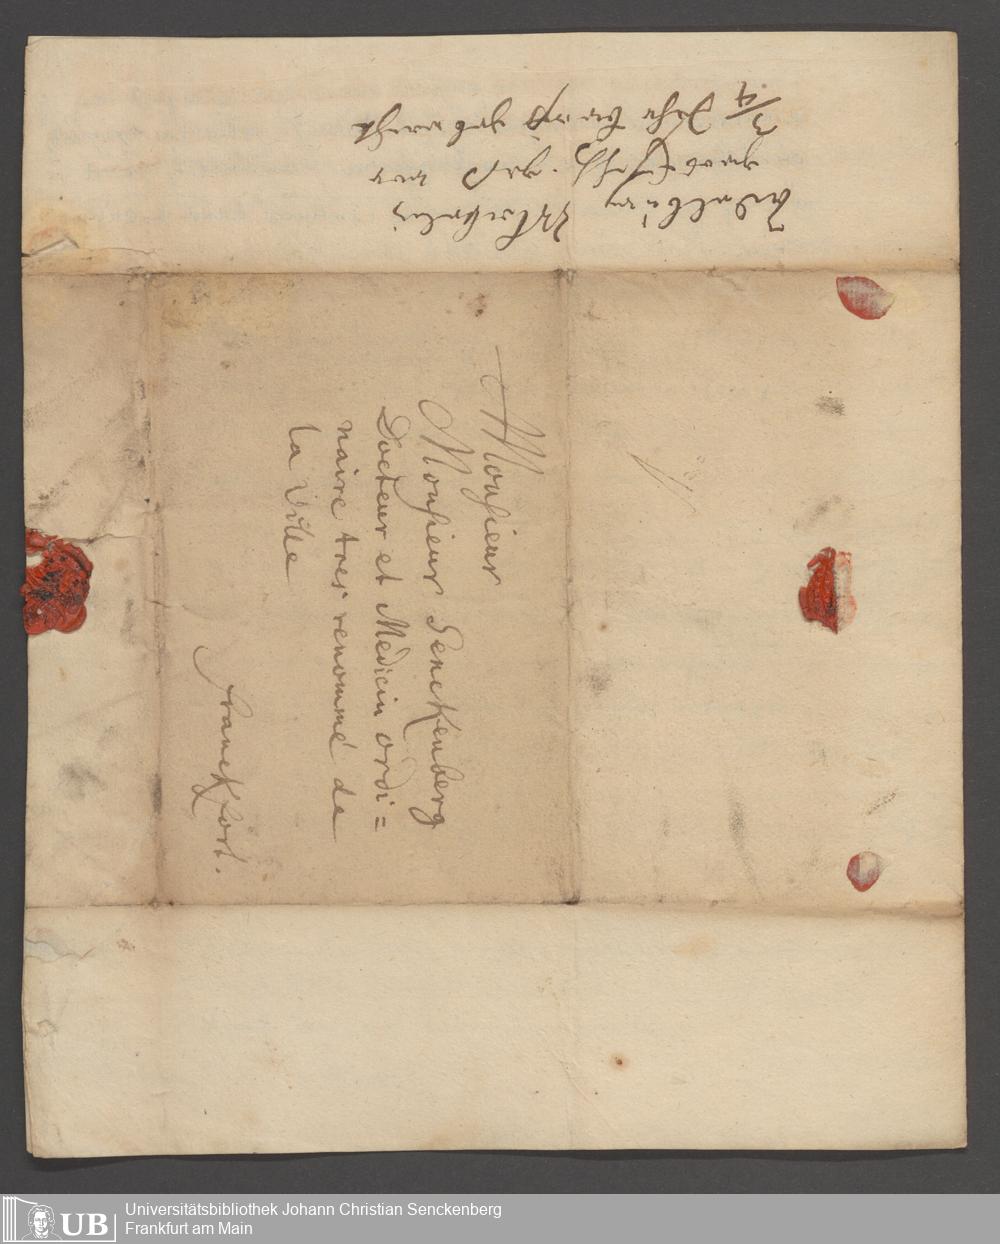 Monsieur
Monsieur Senckenberg
Docteur et Médicin ordi=
naire tres renommé de
la Ville
franckfort.
3/4 Jahr
UB
Universitätsbibliothek Johann Christian Senckenberg
Frankfurt am Main